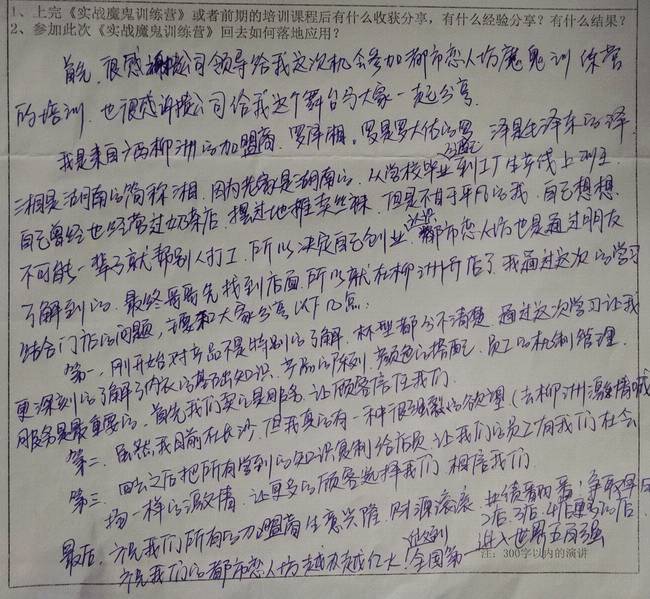 1、上完《实战魔鬼训练营》或者前期的培训课程后有什么收获分享，有什么经验分享？有什么结果？
2、参加此次《实战魔鬼训练营》回去如何落地应用？
首先，很感谢公司领导给我这次机会参加都市恋人坊魔鬼训练营
的培训，也很感谢公司给我这个舞台与大家一起分享。
我是来自广西柳洲的加盟商。罗泽湘。罗是罗大佑的罗 泽是毛泽东的泽
湘是湖南的简称湘，因为老家是湖南的，从学校毕业到工厂生产线上班
自己曾经也经营过奶茶店，摆过地摊卖丝袜。但是不甘于平凡的我，自己想想
不可能一辈子就帮别人打工，所以决定自己创业，都市恋人坊也是通过朋友
了解到的，最终哥哥先找到店面，所以就在柳洲开店了，我通过这次的学习
结合门店的问题，主要和大家分享以下几点：
第一，刚开始对产品不是特别的了解，杯型都分不清楚，通过这次学习让我
更深刻的了解了内衣的基础知识，产品的陈列，颜色的搭配，员工的机制管理，
服务是最重要的，首先我们卖的是服务，让顾客信任我们
第二，虽然我目前在长沙，但我真的有一种很强烈的欲望（去柳洲激情喊
第三，回去之后把所有学到的知识复制给店员，让我们的员工有我们在会
场一样的激情，让更多的顾客选择我们，相信我们
最后，祝我们所有的加盟商生意兴隆，财源滚滚，业绩翻两番；争取早日
2店，3店，4店更多的店
祝我们的都市恋人坊越来越强大！达到全国第一，进入世界五百强
注：300字以内的演讲